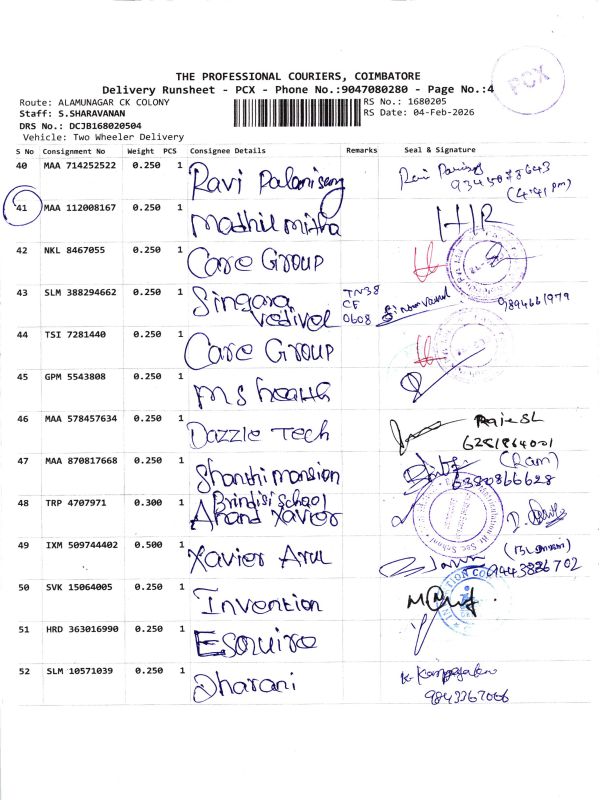 PCX
THE PROFESSIONAL COURIERS, COIMBATORE
Delivery Runsheet - PCX - Phone No.:9047080280 - Page No.:4
Route: ALAMUNAGAR CK COLONY
RS No.: 1680205
Staff: S.SHARAVANAN
RS Date: 04-Feb-2026
DRS No.: DCJB168020504
Vehicle: Two Wheeler Delivery
S No Consignment No Weight PCS Consignee Details Remarks Seal & Signature
40 MAA 714252522 0.250 1 Ravi Palanisamy
(4:41 pm)
41 MAA 112008167 0.250 1 Mathil mitha
42 NKL 8467055 0.250 1 Care Group
43 SLM 388294662 0.250 1 Singara vedivel TN38 CF 0608 9894661979
44 TSI 7281440 0.250 1 Care Group
45 GPM 5543808 0.250 1 ms health
46 MAA 578457634 0.250 1 Dazzle Tech Rajesh
47 MAA 870817668 0.250 1 Shanthi mansion (Ram)
6380866628
48 TRP 4707971 0.300 1 Brindisi school
Anand Xavier
49 IXM 509744402 0.500 1 Xavier Arul
9443886702
50 SVK 15064005 0.250 1 Invention
51 HRD 363016990 0.250 1 Esquire
52 SLM 10571039 0.250 1 Dharani
9843367066